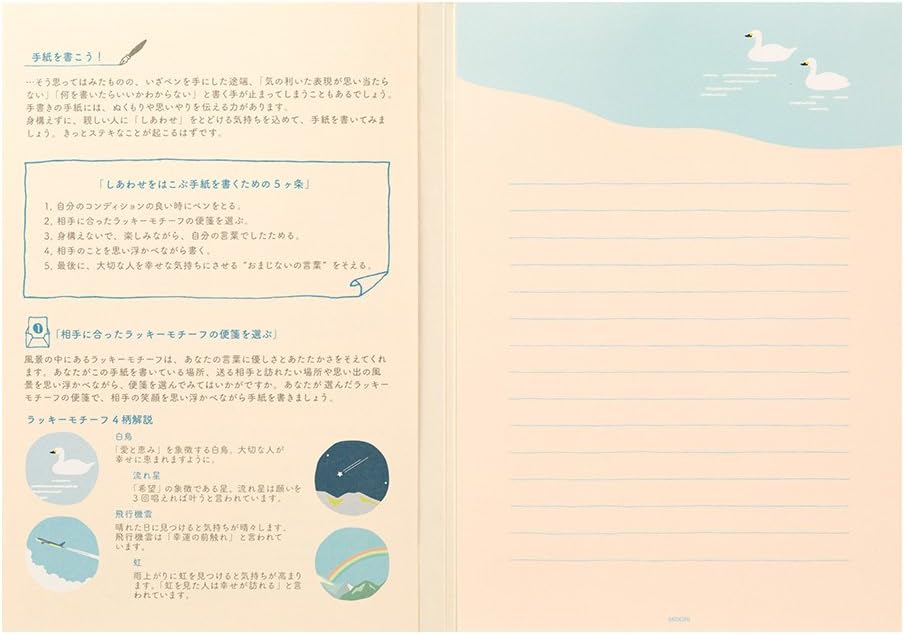 手紙を書こう！
…そう思ってはみたものの、いざペンを手にした途端、「気の利いた表現が思い当たら
ない」「何を書いたらいいかわからない」と書く手が止まってしまうこともあるでしょう。
手書きの手紙には、ぬくもりや思いやりを伝える力があります。
身構えずに、親しい人に「しあわせ」をとどける気持ちを込めて、手紙を書いてみま
しょう。きっとステキなことが起こるはずです。
「しあわせをはこぶ手紙を書くための５ヶ条」
1. 自分のコンディションの良い時にペンをとる。
2. 相手に合ったラッキーモチーフの便箋を選ぶ。
3. 身構えないで、楽しみながら、自分の言葉でしたためる。
4. 相手のことを思い浮かべながら書く。
5. 最後に、大切な人を幸せな気持ちにさせる“おまじないの言葉”をそえる。
1 「相手に合ったラッキーモチーフの便箋を選ぶ」
風景の中にあるラッキーモチーフは、あなたの言葉に優しさとあたたかさをそえてくれ
ます。あなたがこの手紙を書いている場所、送る相手と訪れたい場所や思い出の風
景を思い浮かべながら、便箋を選んでみてはいかがですか。あなたが選んだラッキー
モチーフの便箋で、相手の笑顔を思い浮かべながら手紙を書きましょう。
ラッキーモチーフ４柄解説
白鳥
「愛と恵み」を象徴する白鳥。大切な人が
幸せに恵まれますように。
流れ星
「希望」の象徴である星、流れ星は願いを
３回唱えれば叶うと言われています。
飛行機雲
晴れた日に見つけると気持ちが晴々します。
飛行機雲は「幸運の前触れ」と言われて
います。
虹
雨上がりに虹を見つけると気持ちが高まり
ます。「虹を見た人は幸せが訪れる」と言
われています。
MIDORI